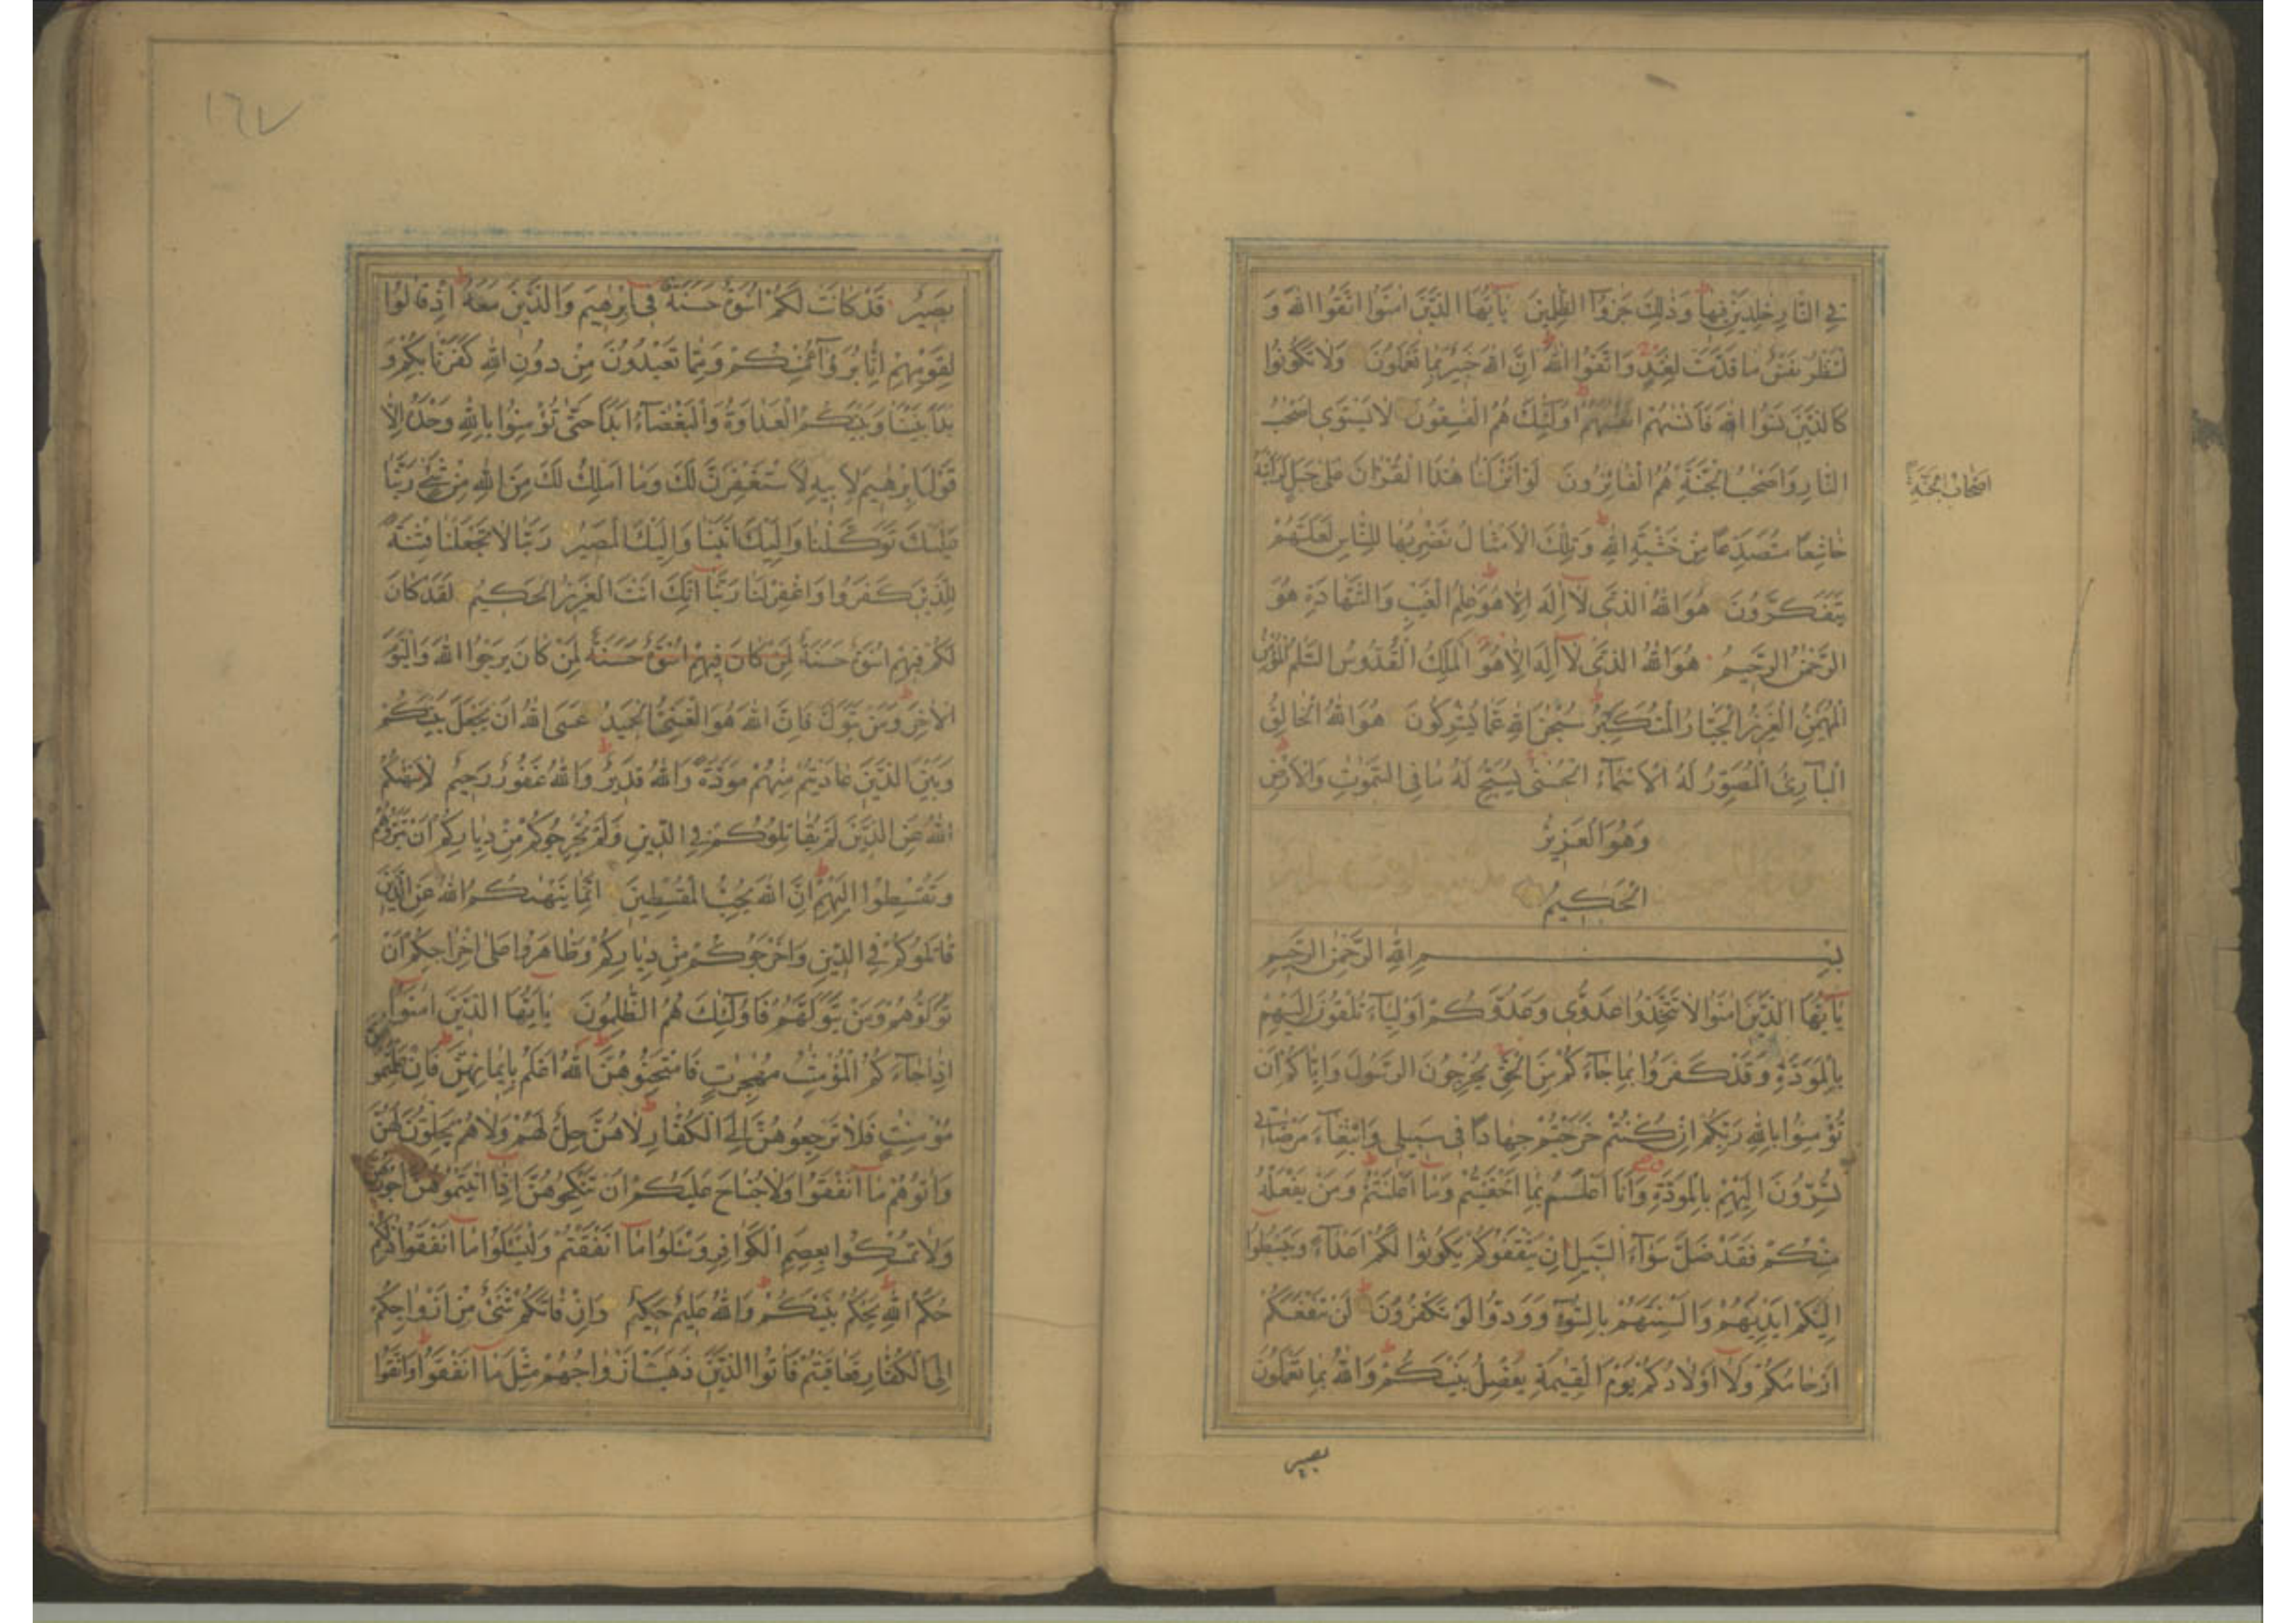 فِي النَّارِ خٰلِدَيْنِ فِيهَا وَذٰلِكَ جَزٰٓؤُا الظّٰلِمِينَ يٰٓاَيُّهَا الَّذِينَ اٰمَنُوا اتَّقُوا اللّٰهَ وَ
لْتَنْظُرْ نَفْسٌ مَا قَدَّمَتْ لِغَدٍ وَاتَّقُوا اللّٰهَ اِنَّ اللّٰهَ خَبِيرٌ بِمَا تَعْمَلُونَ وَلَا تَكُونُوا
كَالَّذِينَ نَسُوا اللّٰهَ فَاَنْسٰهُمْ اَنْفُسَهُمْ اُولٰٓئِكَ هُمُ الْفٰسِقُونَ لَا يَسْتَوِي اَصْحٰبُ
النَّارِ وَاَصْحٰبُ الْجَنَّةِ هُمُ الْفَائِزُونَ لَوْ اَنْزَلْنَا هٰذَا الْقُرْاٰنَ عَلٰى جَبَلٍ لَرَاَيْتَهُ
اصحاب الجنة
خَاشِعًا مُتَصَدِّعًا مِنْ خَشْيَةِ اللّٰهِ وَتِلْكَ الْاَمْثَالُ نَضْرِبُهَا لِلنَّاسِ لَعَلَّهُمْ
يَتَفَكَّرُونَ هُوَ اللّٰهُ الَّذِي لَٓا اِلٰهَ اِلَّا هُوَ عٰلِمُ الْغَيْبِ وَالشَّهَادَةِ هُوَ
الرَّحْمٰنُ الرَّحِيمُ هُوَ اللّٰهُ الَّذِي لَٓا اِلٰهَ اِلَّا هُوَ الْمَلِكُ الْقُدُّوسُ السَّلٰمُ الْمُؤْمِنُ
الْمُهَيْمِنُ الْعَزِيزُ الْجَبَّارُ الْمُتَكَبِّرُ سُبْحٰنَ اللّٰهِ عَمَّا يُشْرِكُونَ هُوَ اللّٰهُ الْخَالِقُ
الْبَارِئُ الْمُصَوِّرُ لَهُ الْاَسْمَآءُ الْحُسْنٰى يُسَبِّحُ لَهُ مَا فِي السَّمٰوٰتِ وَالْاَرْضِ
وَهُوَ الْعَزِيزُ
الْحَكِيمُ
بِسْمِ اللّٰهِ الرَّحْمٰنِ الرَّحِيمِ
يٰٓاَيُّهَا الَّذِينَ اٰمَنُوا لَا تَتَّخِذُوا عَدُوِّي وَعَدُوَّكُمْ اَوْلِيَآءَ تُلْقُونَ اِلَيْهِمْ
بِالْمَوَدَّةِ وَقَدْ كَفَرُوا بِمَا جَآءَكُمْ مِنَ الْحَقِّ يُخْرِجُونَ الرَّسُولَ وَاِيَّاكُمْ اَنْ
تُؤْمِنُوا بِاللّٰهِ رَبِّكُمْ اِنْ كُنْتُمْ خَرَجْتُمْ جِهَادًا فِي سَبِيلِي وَابْتِغَآءَ مَرْضَاتِي
تُسِرُّونَ اِلَيْهِمْ بِالْمَوَدَّةِ وَاَنَا اَعْلَمُ بِمَا اَخْفَيْتُمْ وَمَا اَعْلَنْتُمْ وَمَنْ يَفْعَلْهُ
مِنْكُمْ فَقَدْ ضَلَّ سَوَآءَ السَّبِيلِ اِنْ يَثْقَفُوكُمْ يَكُونُوا لَكُمْ اَعْدَآءً وَيَبْسُطُوا
اِلَيْكُمْ اَيْدِيَهُمْ وَاَلْسِنَتَهُمْ بِالسُّوٓءِ وَوَدُّوا لَوْ تَكْفُرُونَ لَنْ تَنْفَعَكُمْ
اَرْحَامُكُمْ وَلَٓا اَوْلَادُكُمْ يَوْمَ الْقِيٰمَةِ يَفْصِلُ بَيْنَكُمْ وَاللّٰهُ بِمَا تَعْمَلُونَ
بصير
١٦٧
بَصِيرٌ قَدْ كَانَتْ لَكُمْ اُسْوَةٌ حَسَنَةٌ فِٓي اِبْرٰهِيمَ وَالَّذِينَ مَعَهُ اِذْ قَالُوا
لِقَوْمِهِمْ اِنَّا بُرَءٰٓؤُا مِنْكُمْ وَمِمَّا تَعْبُدُونَ مِنْ دُونِ اللّٰهِ كَفَرْنَا بِكُمْ وَ
بَدَا بَيْنَنَا وَبَيْنَكُمُ الْعَدَاوَةُ وَالْبَغْضَآءُ اَبَدًا حَتّٰى تُؤْمِنُوا بِاللّٰهِ وَحْدَهُ اِلَّا
قَوْلَ اِبْرٰهِيمَ لِاَبِيهِ لَاَسْتَغْفِرَنَّ لَكَ وَمَا اَمْلِكُ لَكَ مِنَ اللّٰهِ مِنْ شَيْءٍ رَبَّنَا
عَلَيْكَ تَوَكَّلْنَا وَاِلَيْكَ اَنَبْنَا وَاِلَيْكَ الْمَصِيرُ رَبَّنَا لَا تَجْعَلْنَا فِتْنَةً
لِلَّذِينَ كَفَرُوا وَاغْفِرْ لَنَا رَبَّنَا اِنَّكَ اَنْتَ الْعَزِيزُ الْحَكِيمُ لَقَدْ كَانَ
لَكُمْ فِيهِمْ اُسْوَةٌ حَسَنَةٌ لِمَنْ كَانَ فِيهِمْ اُسْوَةٌ حَسَنَةٌ لِمَنْ كَانَ يَرْجُوا اللّٰهَ وَالْيَوْمَ
الْاٰخِرَ وَمَنْ يَتَوَلَّ فَاِنَّ اللّٰهَ هُوَ الْغَنِيُّ الْحَمِيدُ عَسَى اللّٰهُ اَنْ يَجْعَلَ بَيْنَكُمْ
وَبَيْنَ الَّذِينَ عَادَيْتُمْ مِنْهُمْ مَوَدَّةً وَاللّٰهُ قَدِيرٌ وَاللّٰهُ غَفُورٌ رَحِيمٌ لَا يَنْهٰكُمُ
اللّٰهُ عَنِ الَّذِينَ لَمْ يُقَاتِلُوكُمْ فِي الدِّينِ وَلَمْ يُخْرِجُوكُمْ مِنْ دِيَارِكُمْ اَنْ تَبَرُّوهُمْ
وَتُقْسِطُوا اِلَيْهِمْ اِنَّ اللّٰهَ يُحِبُّ الْمُقْسِطِينَ اِنَّمَا يَنْهٰكُمُ اللّٰهُ عَنِ الَّذِينَ
قَاتَلُوكُمْ فِي الدِّينِ وَاَخْرَجُوكُمْ مِنْ دِيَارِكُمْ وَظَاهَرُوا عَلٰى اِخْرَاجِكُمْ اَنْ
تَوَلَّوْهُمْ وَمَنْ يَتَوَلَّهُمْ فَاُولٰٓئِكَ هُمُ الظّٰلِمُونَ يٰٓاَيُّهَا الَّذِينَ اٰمَنُوا
اِذَا جَآءَكُمُ الْمُؤْمِنٰتُ مُهٰجِرٰتٍ فَامْتَحِنُوهُنَّ اَللّٰهُ اَعْلَمُ بِاِيمَانِهِنَّ فَاِنْ عَلِمْتُمُوهُنَّ
مُؤْمِنٰتٍ فَلَا تَرْجِعُوهُنَّ اِلَى الْكُفَّارِ لَا هُنَّ حِلٌّ لَهُمْ وَلَا هُمْ يَحِلُّونَ لَهُنَّ
وَاٰتُوهُمْ مَٓا اَنْفَقُوا وَلَا جُنَاحَ عَلَيْكُمْ اَنْ تَنْكِحُوهُنَّ اِذَٓا اٰتَيْتُمُوهُنَّ اُجُورَهُنَّ
وَلَا تُمْسِكُوا بِعِصَمِ الْكَوَافِرِ وَسْئَلُوا مَٓا اَنْفَقْتُمْ وَلْيَسْئَلُوا مَٓا اَنْفَقُوا ذٰلِكُمْ
حُكْمُ اللّٰهِ يَحْكُمُ بَيْنَكُمْ وَاللّٰهُ عَلِيمٌ حَكِيمٌ وَاِنْ فَاتَكُمْ شَيْءٌ مِنْ اَزْوَاجِكُمْ
اِلَى الْكُفَّارِ فَعَاقَبْتُمْ فَاٰتُوا الَّذِينَ ذَهَبَتْ اَزْوَاجُهُمْ مِثْلَ مَٓا اَنْفَقُوا وَاتَّقُوا